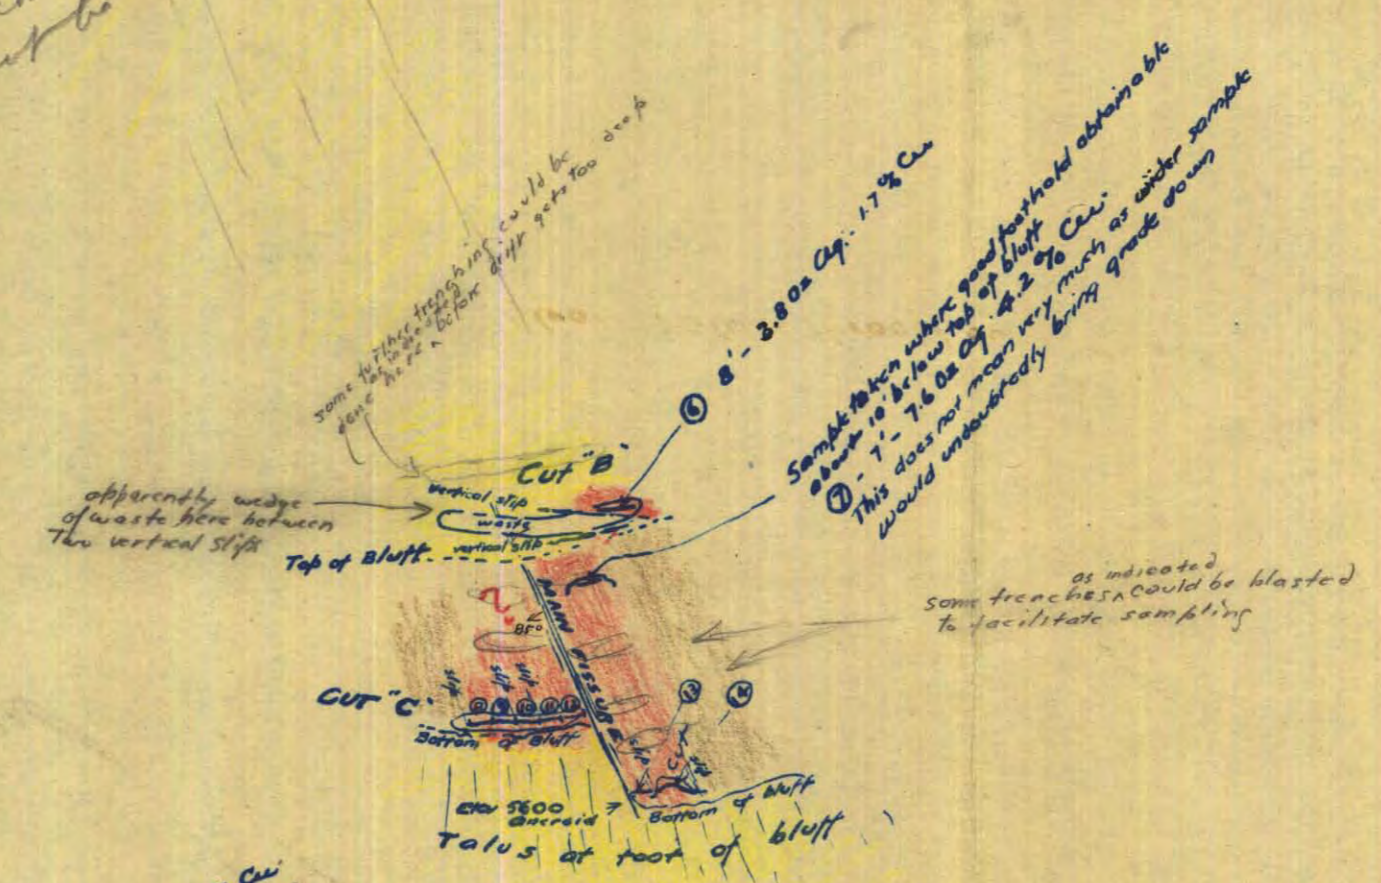 some further trenching could be
done as indicated
here before drift gets too deep
⑥ 8' - 3.8 oz Ag. - 1.7 % Cu
Sample taken where good foothold obtainable
about 10' below top of bluff
⑦ - 7' - 7.6 oz Ag. 4.2 % Cu.
This does not mean very much as wider sample
would undoubtedly bring grade down
Cut "B"
vertical slip
waste
vertical slip
apparently wedge
of waste here between
Two vertical slips
Top of Bluff
?
85°
MAIN FISSURE
as indicated
some trenches ^ could be blasted
to facilitate sampling
CUT "C"
slip
slip
slip
⑩ ⑪ ⑫
⑬
⑭
Bottom of Bluff
slip
slip
Elev 5600
aneroid
Bottom of bluff
Talus at foot of bluff
Cu